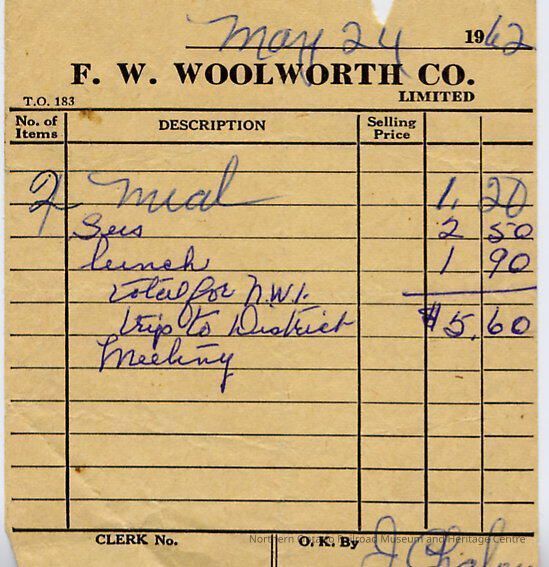 May 24 1962
F. W. WOOLWORTH CO.
LIMITED
T.O. 183
No. of Items DESCRIPTION Selling Price
2 Meal 1. 20
2 50
lunch 1 90
total for N.W.I.
trip to District $5.60
Meeting
CLERK No. O.K. By J
Northern Ontario Railroad Museum and Heritage Centre